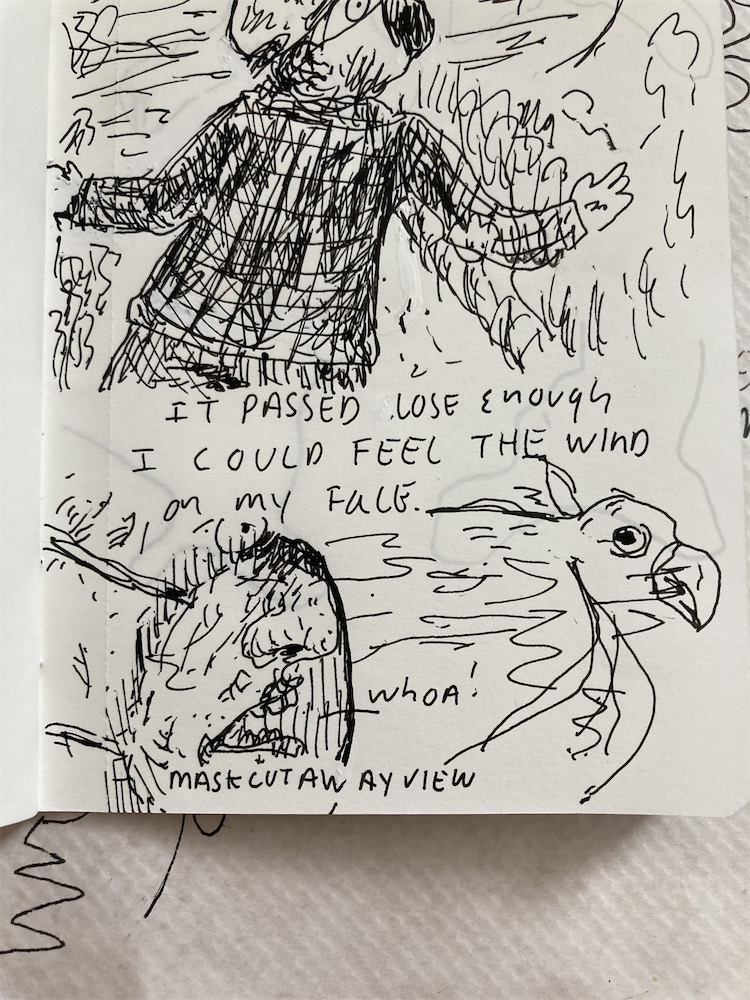 IT PASSED LOSE Enough
I COULD FEEL THE WIND
on my FACE.
WHOA!
MASK CUT AWAY VIEW